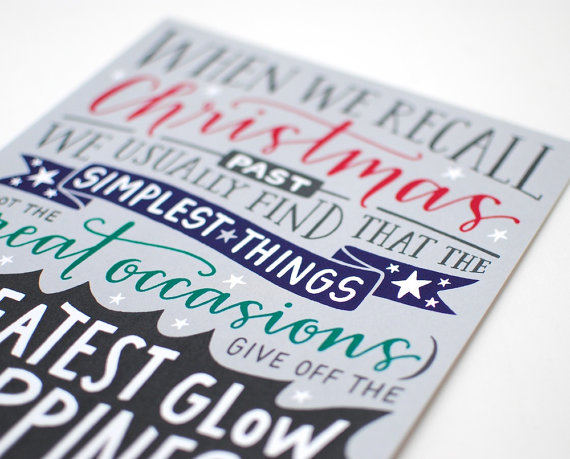 WHEN WE RECALL
Christmas
PAST
WE USUALLY FIND THAT THE
SIMPLEST THINGS
NOT THE
great occasions)
GIVE OFF THE
GREATEST GLOW
HAPPINESS